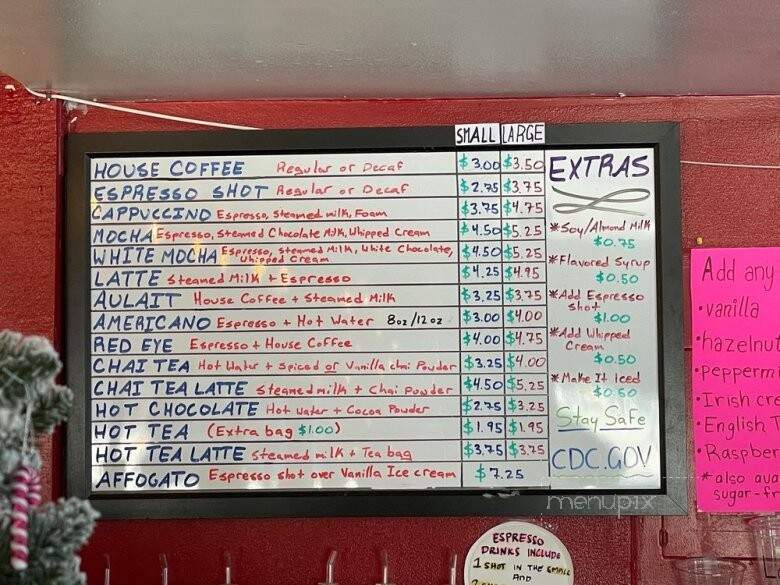 SMALL LARGE
HOUSE COFFEE Regular or Decaf $3.00 $3.50
ESPRESSO SHOT Regular or Decaf $2.75 $3.75
CAPPUCCINO Espresso, Steamed milk, Foam $3.75 $4.75
MOCHA Espresso, Steamed Chocolate Milk, Whipped Cream $4.50 $5.25
WHITE MOCHA Espresso, Steamed Milk, White Chocolate, Whipped Cream $4.50 $5.25
LATTE Steamed Milk + Espresso $4.25 $4.95
AULAIT House Coffee + Steamed Milk $3.25 $3.75
AMERICANO Espresso + Hot Water 8oz/12oz $3.00 $4.00
RED EYE Espresso + House Coffee $4.00 $4.75
CHAI TEA Hot Water + Spiced or Vanilla chai Powder $3.25 $4.00
CHAI TEA LATTE Steamed milk + Chai Powder $4.50 $5.25
HOT CHOCOLATE Hot Water + Cocoa Powder $2.75 $3.25
HOT TEA (Extra bag $1.00) $1.95 $1.95
HOT TEA LATTE Steamed milk + Tea bag $3.75 $3.75
AFFOGATO Espresso shot over Vanilla Ice cream $7.25
EXTRAS
*Soy/Almond Milk
$0.75
*Flavored Syrup
$0.50
*Add Espresso
Shot
$1.00
*Add Whipped
Cream
$0.50
*Make It Iced
$0.50
Stay Safe
CDC.GOV
menupix
Add any
•vanilla
•hazelnut
•Peppermi
•Irish cre
•English T
•Raspber
*also ava
sugar-fr
ESPRESSO
DRINKS INCLUDE
1 SHOT IN THE SMALL
AND